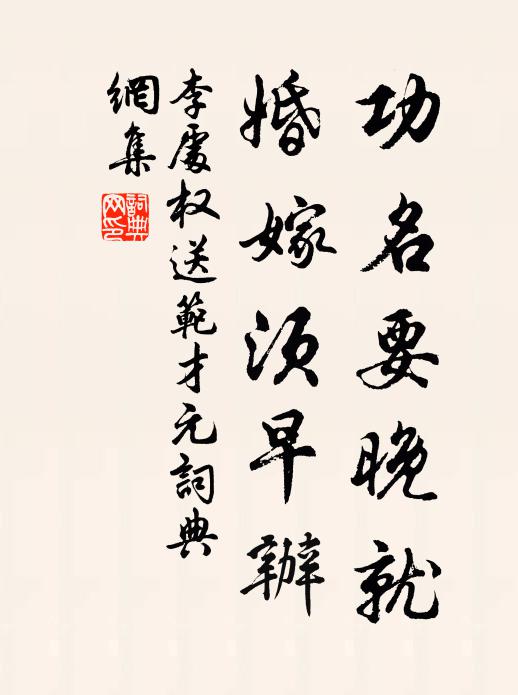 功名要晚就
婚嫁須早辦
李處权送範才元詞典
網集
詞典网印